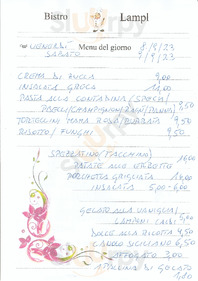 Bistro Lampl
VENERDI 8/9/23
Menu del giorno
SABATO 9/9/23
CREMA DI ZUCCA 9,00
INSALATA GRECA 11,00
PASTA ALLA CONTADINA (SPECK/
PISELLI/CHAMPIGNON/PANNA) 9,50
TORTELLINI POMODORO/BURRATA 9,50
RISOTTO/FUNGHI 9,50
SPEZZATINO (TACCHINO)
PATATE ALLO
GRIGLIATA 15,00
INSALATA 5,00-6,00
GELATO ALLA VANIGLIA/
LAMPONI CALDI 5,60
DOLCE ALLA RICOTTA 4,50
CANNOLO SICILIANO 6,50
AFFOGATO 3,00
PALLINA DI GELATO
1,80